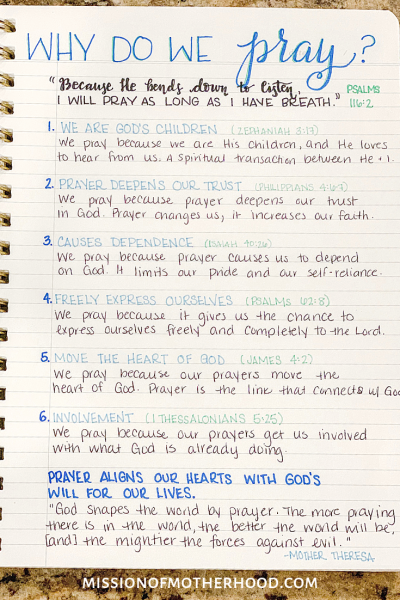 WHY DO WE pray?
"Because He bends down to listen,
I WILL PRAY AS LONG AS I HAVE BREATH."
PSALMS
116:2
1. WE ARE GOD'S CHILDREN (ZEPHANIAH 3:17)
We pray because we are His children, and He loves
to hear from us. A spiritual transaction between He + I.
2. PRAYER DEEPENS OUR TRUST (PHILIPPIANS 4:6-7)
We pray because prayer deepens our trust
in God. Prayer changes us; it increases our faith.
3. CAUSES DEPENDENCE (ISAIAH 40:26)
We pray because prayer causes us to depend
on God. It limits our pride and our self-reliance.
4. FREELY EXPRESS OURSELVES (PSALMS 62:8)
We pray because it gives us the chance to
express ourselves freely and completely to the Lord.
5. MOVE THE HEART OF GOD (JAMES 4:2)
We pray because our prayers move the
heart of God. Prayer is the link that connects w/ God
6. INVOLVEMENT (1 THESSALONIANS 5:25)
We pray because our prayers get us involved
with what God is already doing.
PRAYER ALIGNS OUR HEARTS WITH GOD'S
WILL FOR OUR LIVES.
"God shapes the world by prayer. The more praying
there is in the world, the better the world will be,
[and] the mightier the forces against evil."
-MOTHER THERESA
MISSIONOFMOTHERHOOD.COM